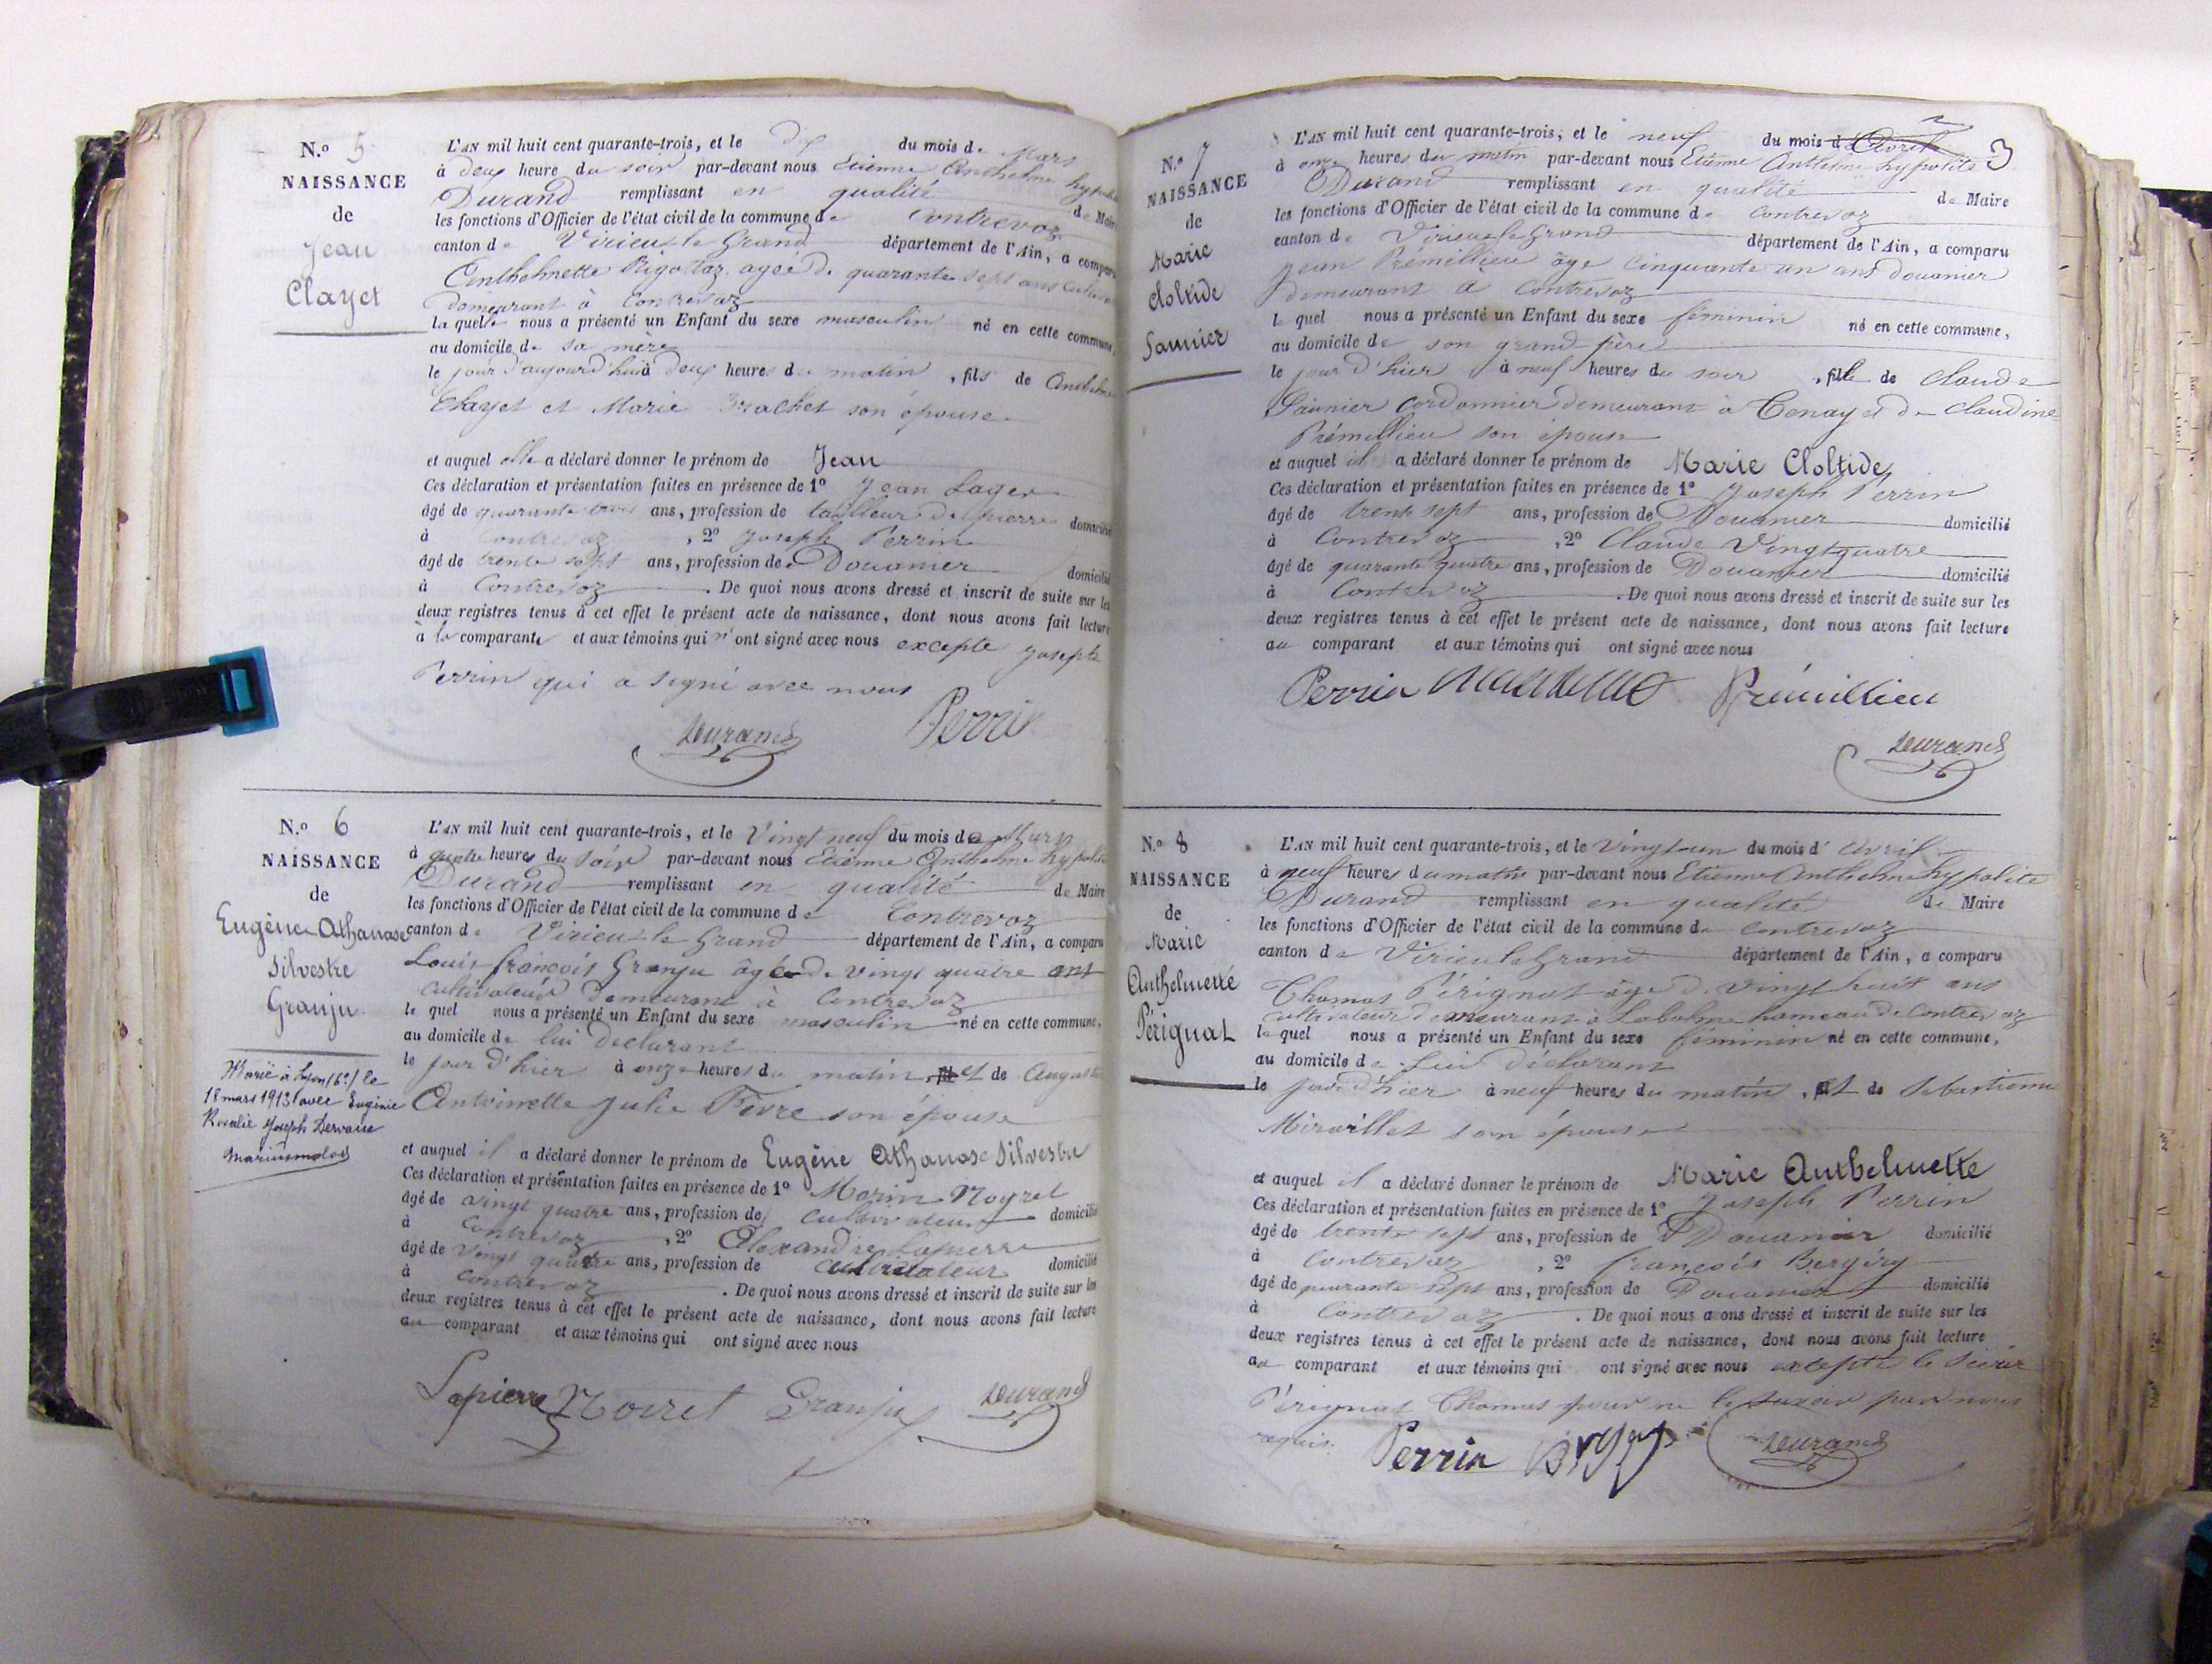 N.o 5
NAISSANCE
de
Jean
Clayet
L'AN mil huit cent quarante-trois, et le dix du mois de Mars
à deux heure du soir par-devant nous Etienne Anthelme hypolite
Durand remplissant en qualité de Maire
les fonctions d'Officier de l'état civil de la commune de Contrevoz
canton de Virieu le Grand département de l'Ain, a comparu
Anthelmette Rigottaz agée de quarante sept ans
demeurant à Contrevoz
la quelle nous a présenté un Enfant du sexe masculin né en cette commune,
au domicile de sa mère
le jour d'aujourd'hui à deux heures du matin, fils de Anthelme
Clayet et Marie Brachet son épouse
et auquel elle a déclaré donner le prénom de Jean
Ces déclaration et présentation faites en présence de 1º Jean Lager
âgé de quarante trois ans, profession de tailleur de pierre domicilié
à Contrevoz, 2º Joseph Perrin
âgé de trente sept ans, profession de Douanier domicilié
à Contrevoz. De quoi nous avons dressé et inscrit de suite sur les
deux registres tenus à cet effet le présent acte de naissance, dont nous avons fait lecture
à la comparante et aux témoins qui n'ont signé avec nous excepte Joseph
Perrin qui a signé avec nous
Durand Perrin
N.o 6
NAISSANCE
de
Eugène Athanase
Silvestre
Granju
Marié à Lyon (6e) le
18 mars 1913 avec Eugénie
Rosalie Joseph Dervaux
L'AN mil huit cent quarante-trois, et le Vingt neuf du mois de Mars
à quatre heures du soir par-devant nous Etienne Anthelme hypolite
Durand remplissant en qualité de Maire
les fonctions d'Officier de l'état civil de la commune de Contrevoz
canton de Virieu le Grand département de l'Ain, a comparu
Louis françois Granju âgé de vingt quatre ans
cultivateur demeurant à Contrevoz
le quel nous a présenté un Enfant du sexe masculin né en cette commune,
au domicile de lui déclarant
le jour d'hier à onze heures du matin, et de Auguste
Antoinette Julie Fevre son épouse
et auquel il a déclaré donner le prénom de Eugène Athanase Silvestre
Ces déclaration et présentation faites en présence de 1º Marin Noyret
âgé de vingt quatre ans, profession de cultivateur domicilié
à Contrevoz, 2º Alexandre Lapierre
âgé de vingt quatre ans, profession de cultivateur domicilié
à Contrevoz. De quoi nous avons dressé et inscrit de suite sur les
deux registres tenus à cet effet le présent acte de naissance, dont nous avons fait lecture
au comparant et aux témoins qui ont signé avec nous
Lapierre Noiret Granju Durand
3
N.o 7
NAISSANCE
de
Marie
Cloltide
Saunier
L'AN mil huit cent quarante-trois, et le neuf du mois d'Avril
à onze heures du matin par-devant nous Etienne Anthelme hypolite
Durand remplissant en qualité de Maire
les fonctions d'Officier de l'état civil de la commune de Contrevoz
canton de Virieu le Grand département de l'Ain, a comparu
Jean Prémillieu âgé cinquante un ans douanier
demeurant à Contrevoz
le quel nous a présenté un Enfant du sexe féminin né en cette commune,
au domicile de son grand père
le jour d'hier à neuf heures du soir, fille de Claude
Saunier Cordonnier demeurant à Tenay et de Claudine
Prémillieu son épouse
et auquel il a déclaré donner le prénom de Marie Cloltide
Ces déclaration et présentation faites en présence de 1º Joseph Perrin
âgé de trente sept ans, profession de Douanier domicilié
à Contrevoz, 2º Claude Vingtquatre
âgé de quarante quatre ans, profession de Douanier domicilié
à Contrevoz. De quoi nous avons dressé et inscrit de suite sur les
deux registres tenus à cet effet le présent acte de naissance, dont nous avons fait lecture
au comparant et aux témoins qui ont signé avec nous
Perrin Prémillieu
Durand
N.o 8
NAISSANCE
de
Marie
Anthelmette
Pérignat
L'AN mil huit cent quarante-trois, et le vingt un du mois d'Avril
à neuf heures du matin par-devant nous Etienne Anthelme hypolite
Durand remplissant en qualité de Maire
les fonctions d'Officier de l'état civil de la commune de Contrevoz
canton de Virieu le Grand département de l'Ain, a comparu
Thomas Pérignat âgé de vingt huit ans
cultivateur demeurant à Labalme hameau de Contrevoz
le quel nous a présenté un Enfant du sexe féminin né en cette commune,
au domicile de Lui déclarant
le jour d'hier à neuf heures du matin, et de Sebastienne
Miraillet son épouse
et auquel il a déclaré donner le prénom de Marie Anthelmette
Ces déclaration et présentation faites en présence de 1º Joseph Perrin
âgé de trente sept ans, profession de Douanier domicilié
à Contrevoz, 2º françois
âgé de quarante sept ans, profession de Douanier domicilié
à Contrevoz. De quoi nous avons dressé et inscrit de suite sur les
deux registres tenus à cet effet le présent acte de naissance, dont nous avons fait lecture
au comparant et aux témoins qui ont signé avec nous excepté le Sieur
Pérignat Thomas pour ne le savoir par nous
requis.
Perrin Durand